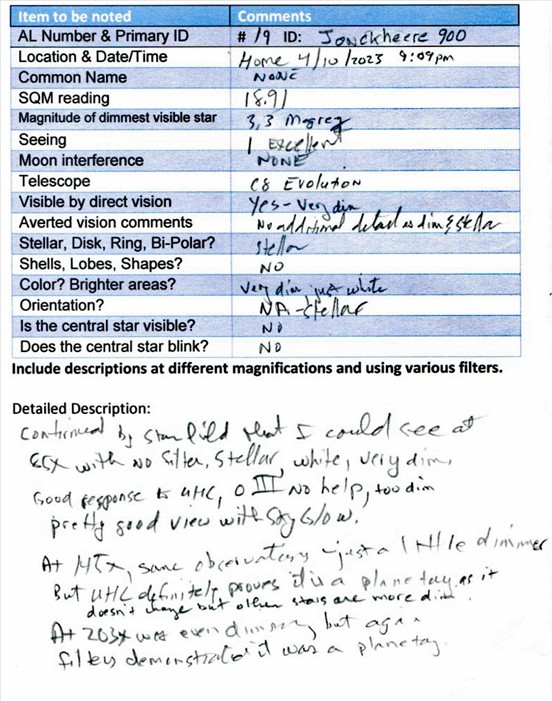 Item to be noted Comments
AL Number & Primary ID # 19 ID: Jonckheere 900
Location & Date/Time Home 4/10/2023 9:09pm
Common Name NONE
SQM reading 18.91
Magnitude of dimmest visible star 3,3 Magreg
Seeing 1 Excellent
Moon interference NONE
Telescope C8 Evolution
Visible by direct vision Yes- Very dim
Averted vision comments No additional detail as dim & stellar
Stellar, Disk, Ring, Bi-Polar? Stellar
Shells, Lobes, Shapes? NO
Color? Brighter areas? Very dim, just white
Orientation? NA-stellar
Is the central star visible? NO
Does the central star blink? NO
Include descriptions at different magnifications and using various filters.
Detailed Description:
Confirmed by starfield that I could see at
with No filter, Stellar, white, very dim,
Good response to UHC, O III No help, too dim
pretty good view with Sky Glow.
At same observation just a little dimmer
But UHC definitely proves it is a planetary as it
doesn't change but other stars are more dim.
At 203x was even dimmer, but again
filters demonstrated it was a planetary.